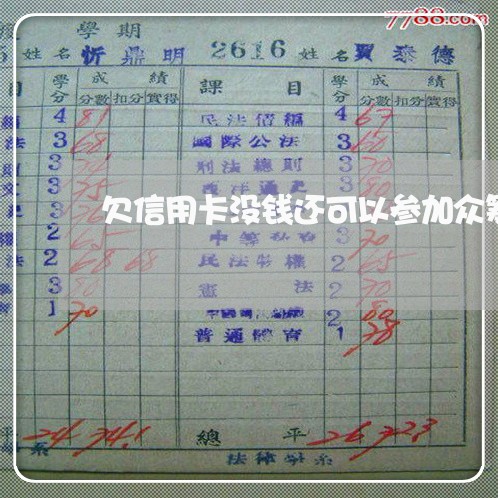 7788.com
學期
姓名 忻鼎明 2616 姓名 賈泰德
目 學分 成績 課目 學分 成績
分數 扣分 實得 分數 扣分 實得
4 81 民法債編 4 67
法 3 68 國際公法 3 60
3 刑法總則 3 70
3 75 西洋通史 3 80
欠信用卡没钱还可以参加众筹
2 65 3 70
法 2 68 68 民法物權 2 65
3 80 憲法 2 70
1 70 2 80
普通體育 1 78
平 24 74.1 總平 26 72.3
系 法律學系